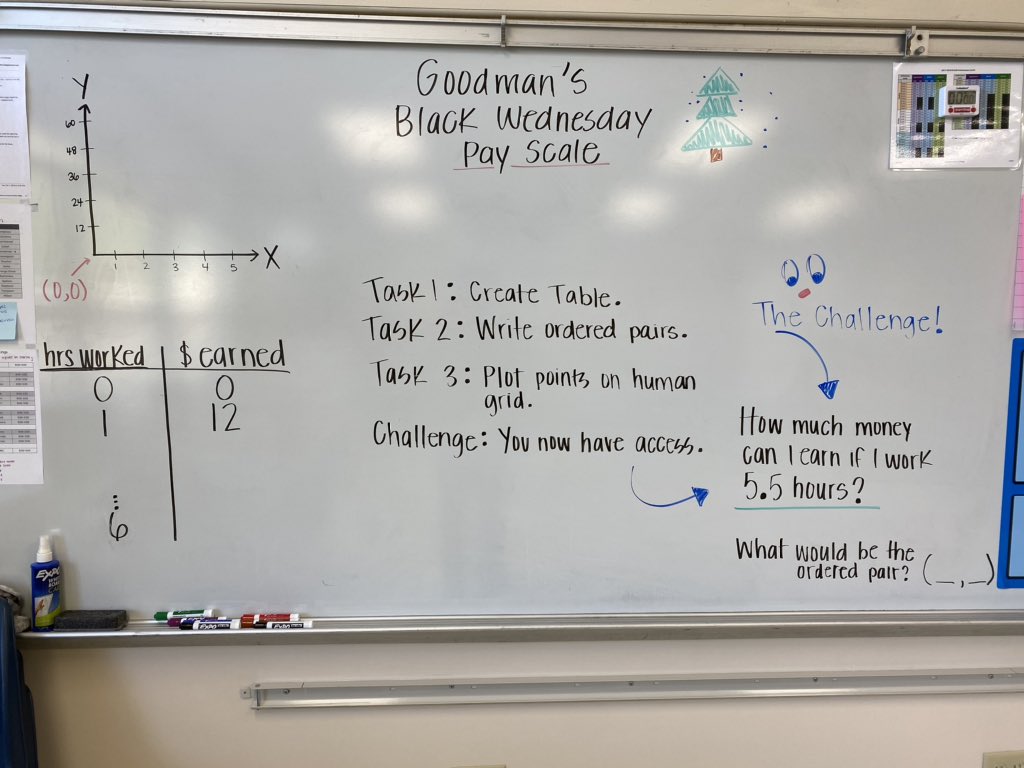 Goodman's
Black Wednesday
Pay Scale
Y
60
48
36
24
12
1 2 3 4 5 X
(0,0)
hrs worked $ earned
0 0
1 12
⋮
6
Task 1: Create Table.
Task 2: Write ordered pairs.
Task 3: Plot points on human
grid.
Challenge: You now have access.
The Challenge!
How much money
can I earn if I work
5.5 hours?
What would be the
ordered pair? (_,_)
EXPO
EXPO
EXPO